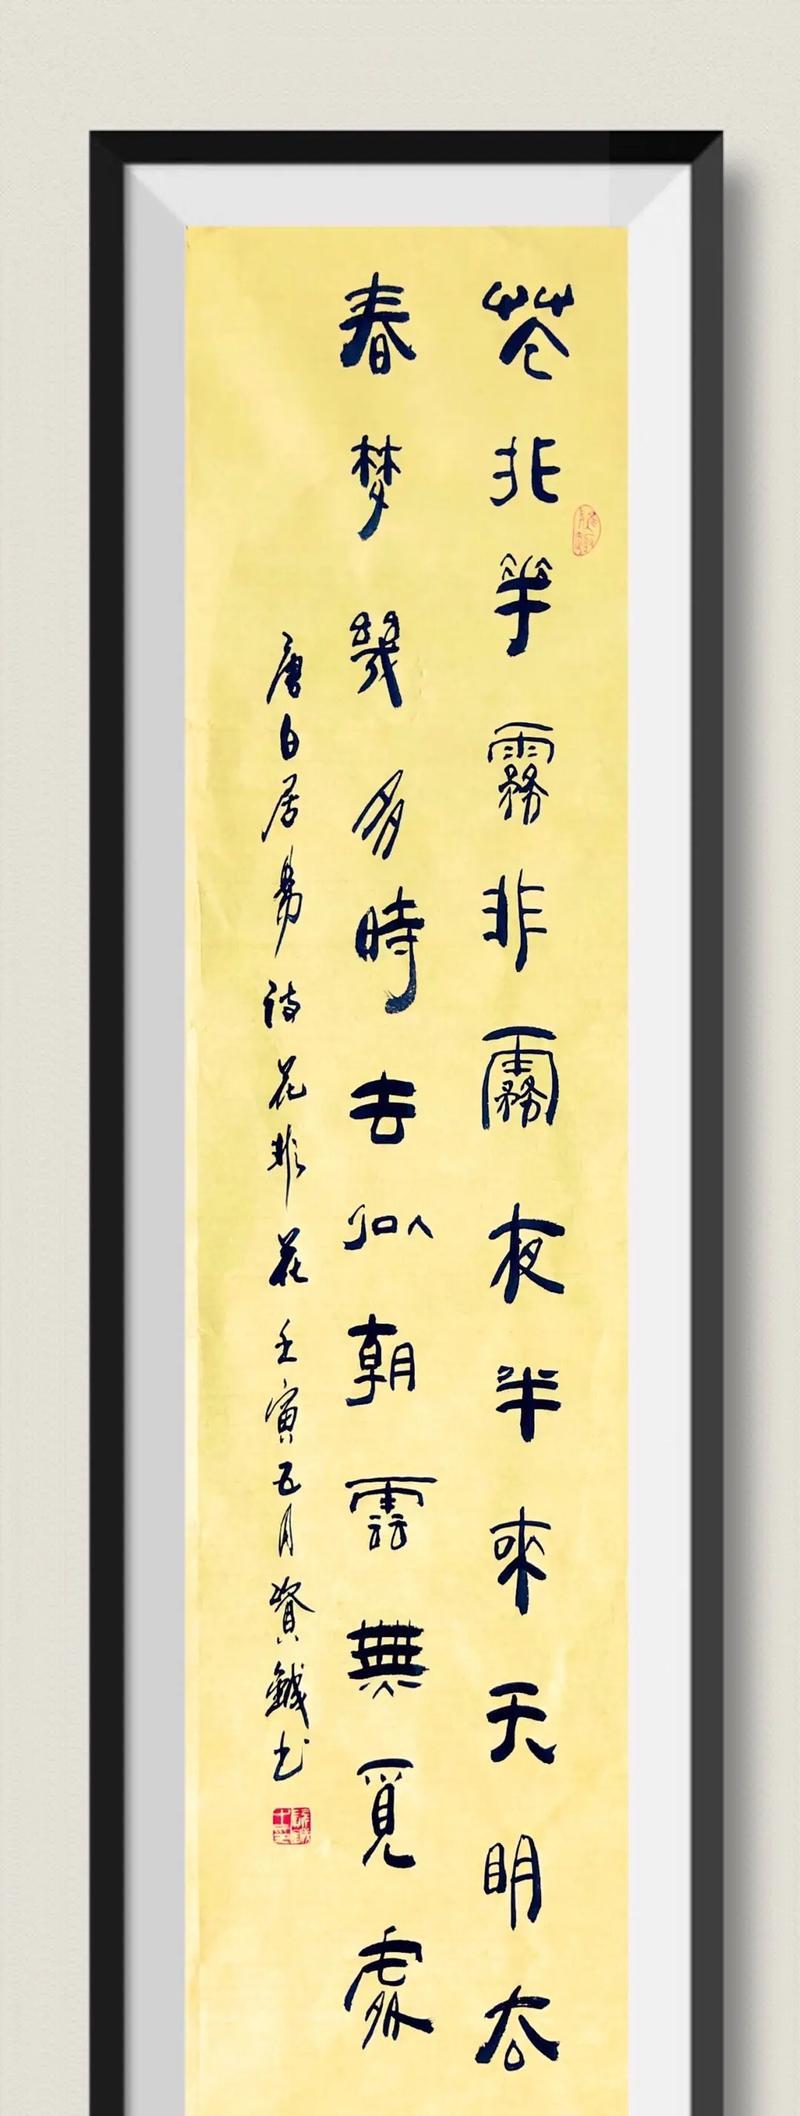 花非華霧非霧夜半來天明去
春梦幾多時去似朝雲無覓處
唐白居易诗花非花壬寅五月书